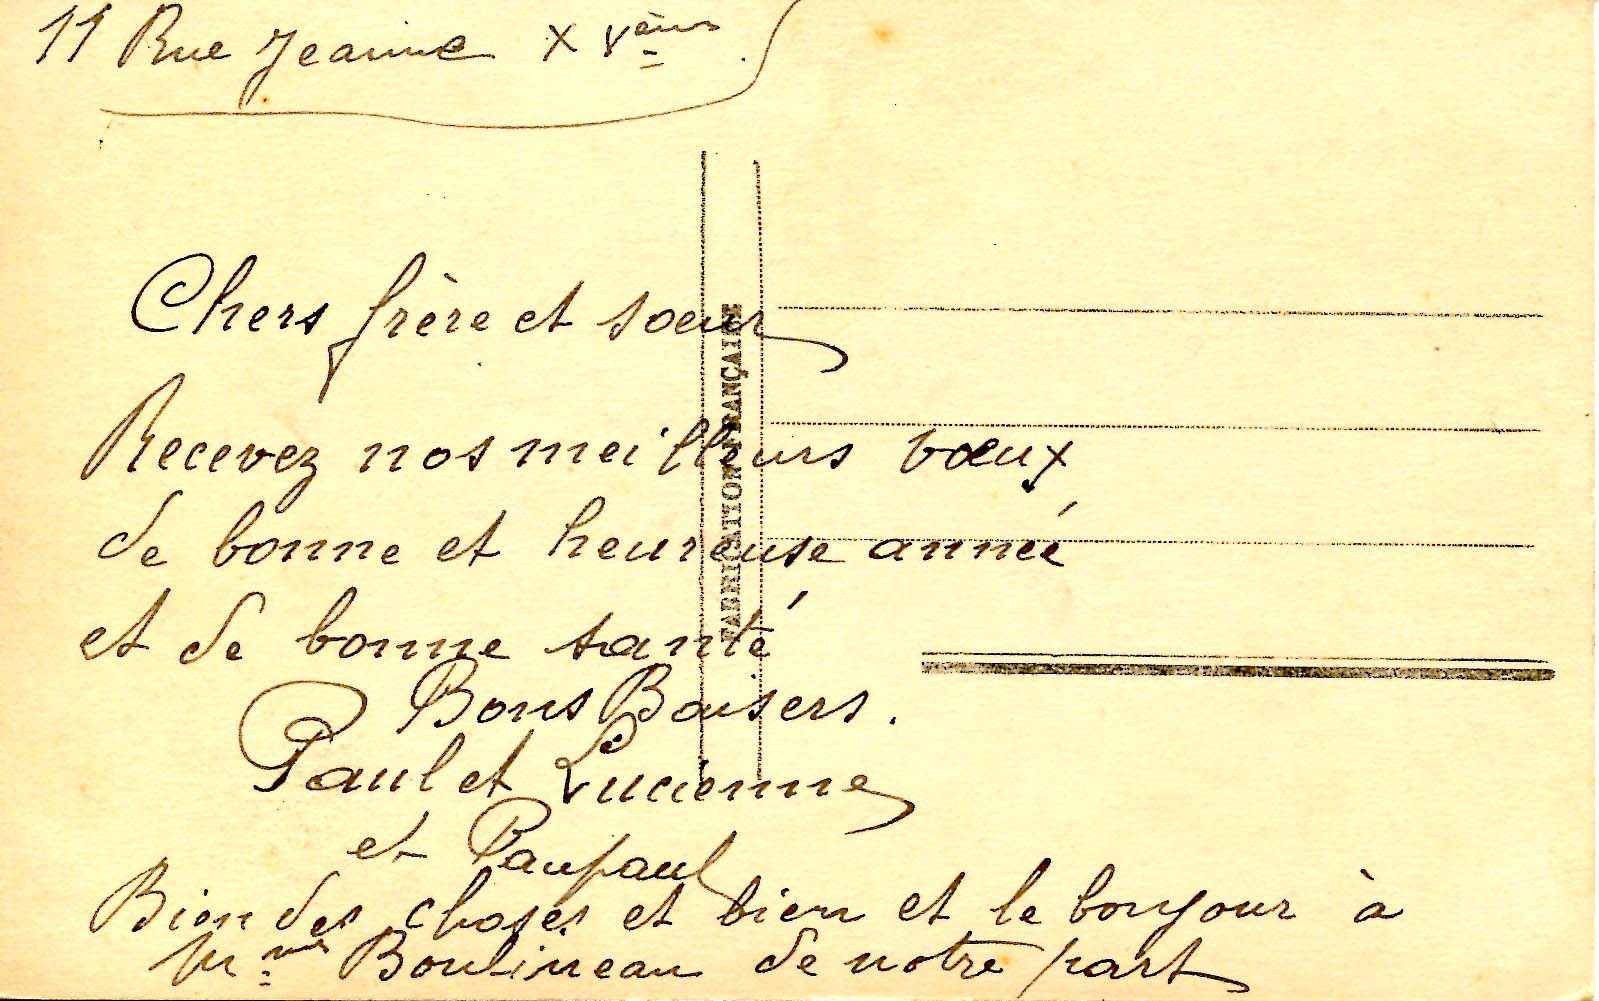 11 Rue Jeanne XVème
Chers frère et sœur
Recevez nos meilleurs vœux
de bonne et heureuse année
et de bonne santé
Bons Baisers.
Paul et Lucienne
et Paupaul
Bien des choses et bien et le bonjour à
Mme Boulineau de notre part
FABRICATION FRANÇAISE